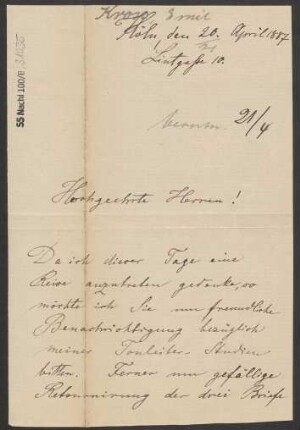 55 Nachl 100/B
Krause Emil
Köln, den 20. April 1887
Lintgasse 10.
21/4
Hochgeehrte Herren!
Da ich dieser Tage eine
Reise anzutreten gedenke, so
möchte ich Sie um freundliche
Benachrichtigung bezüglich
meiner Tonleiter-Studien
bitten. Ferner um gefällige
Retournirung der drei Briefe